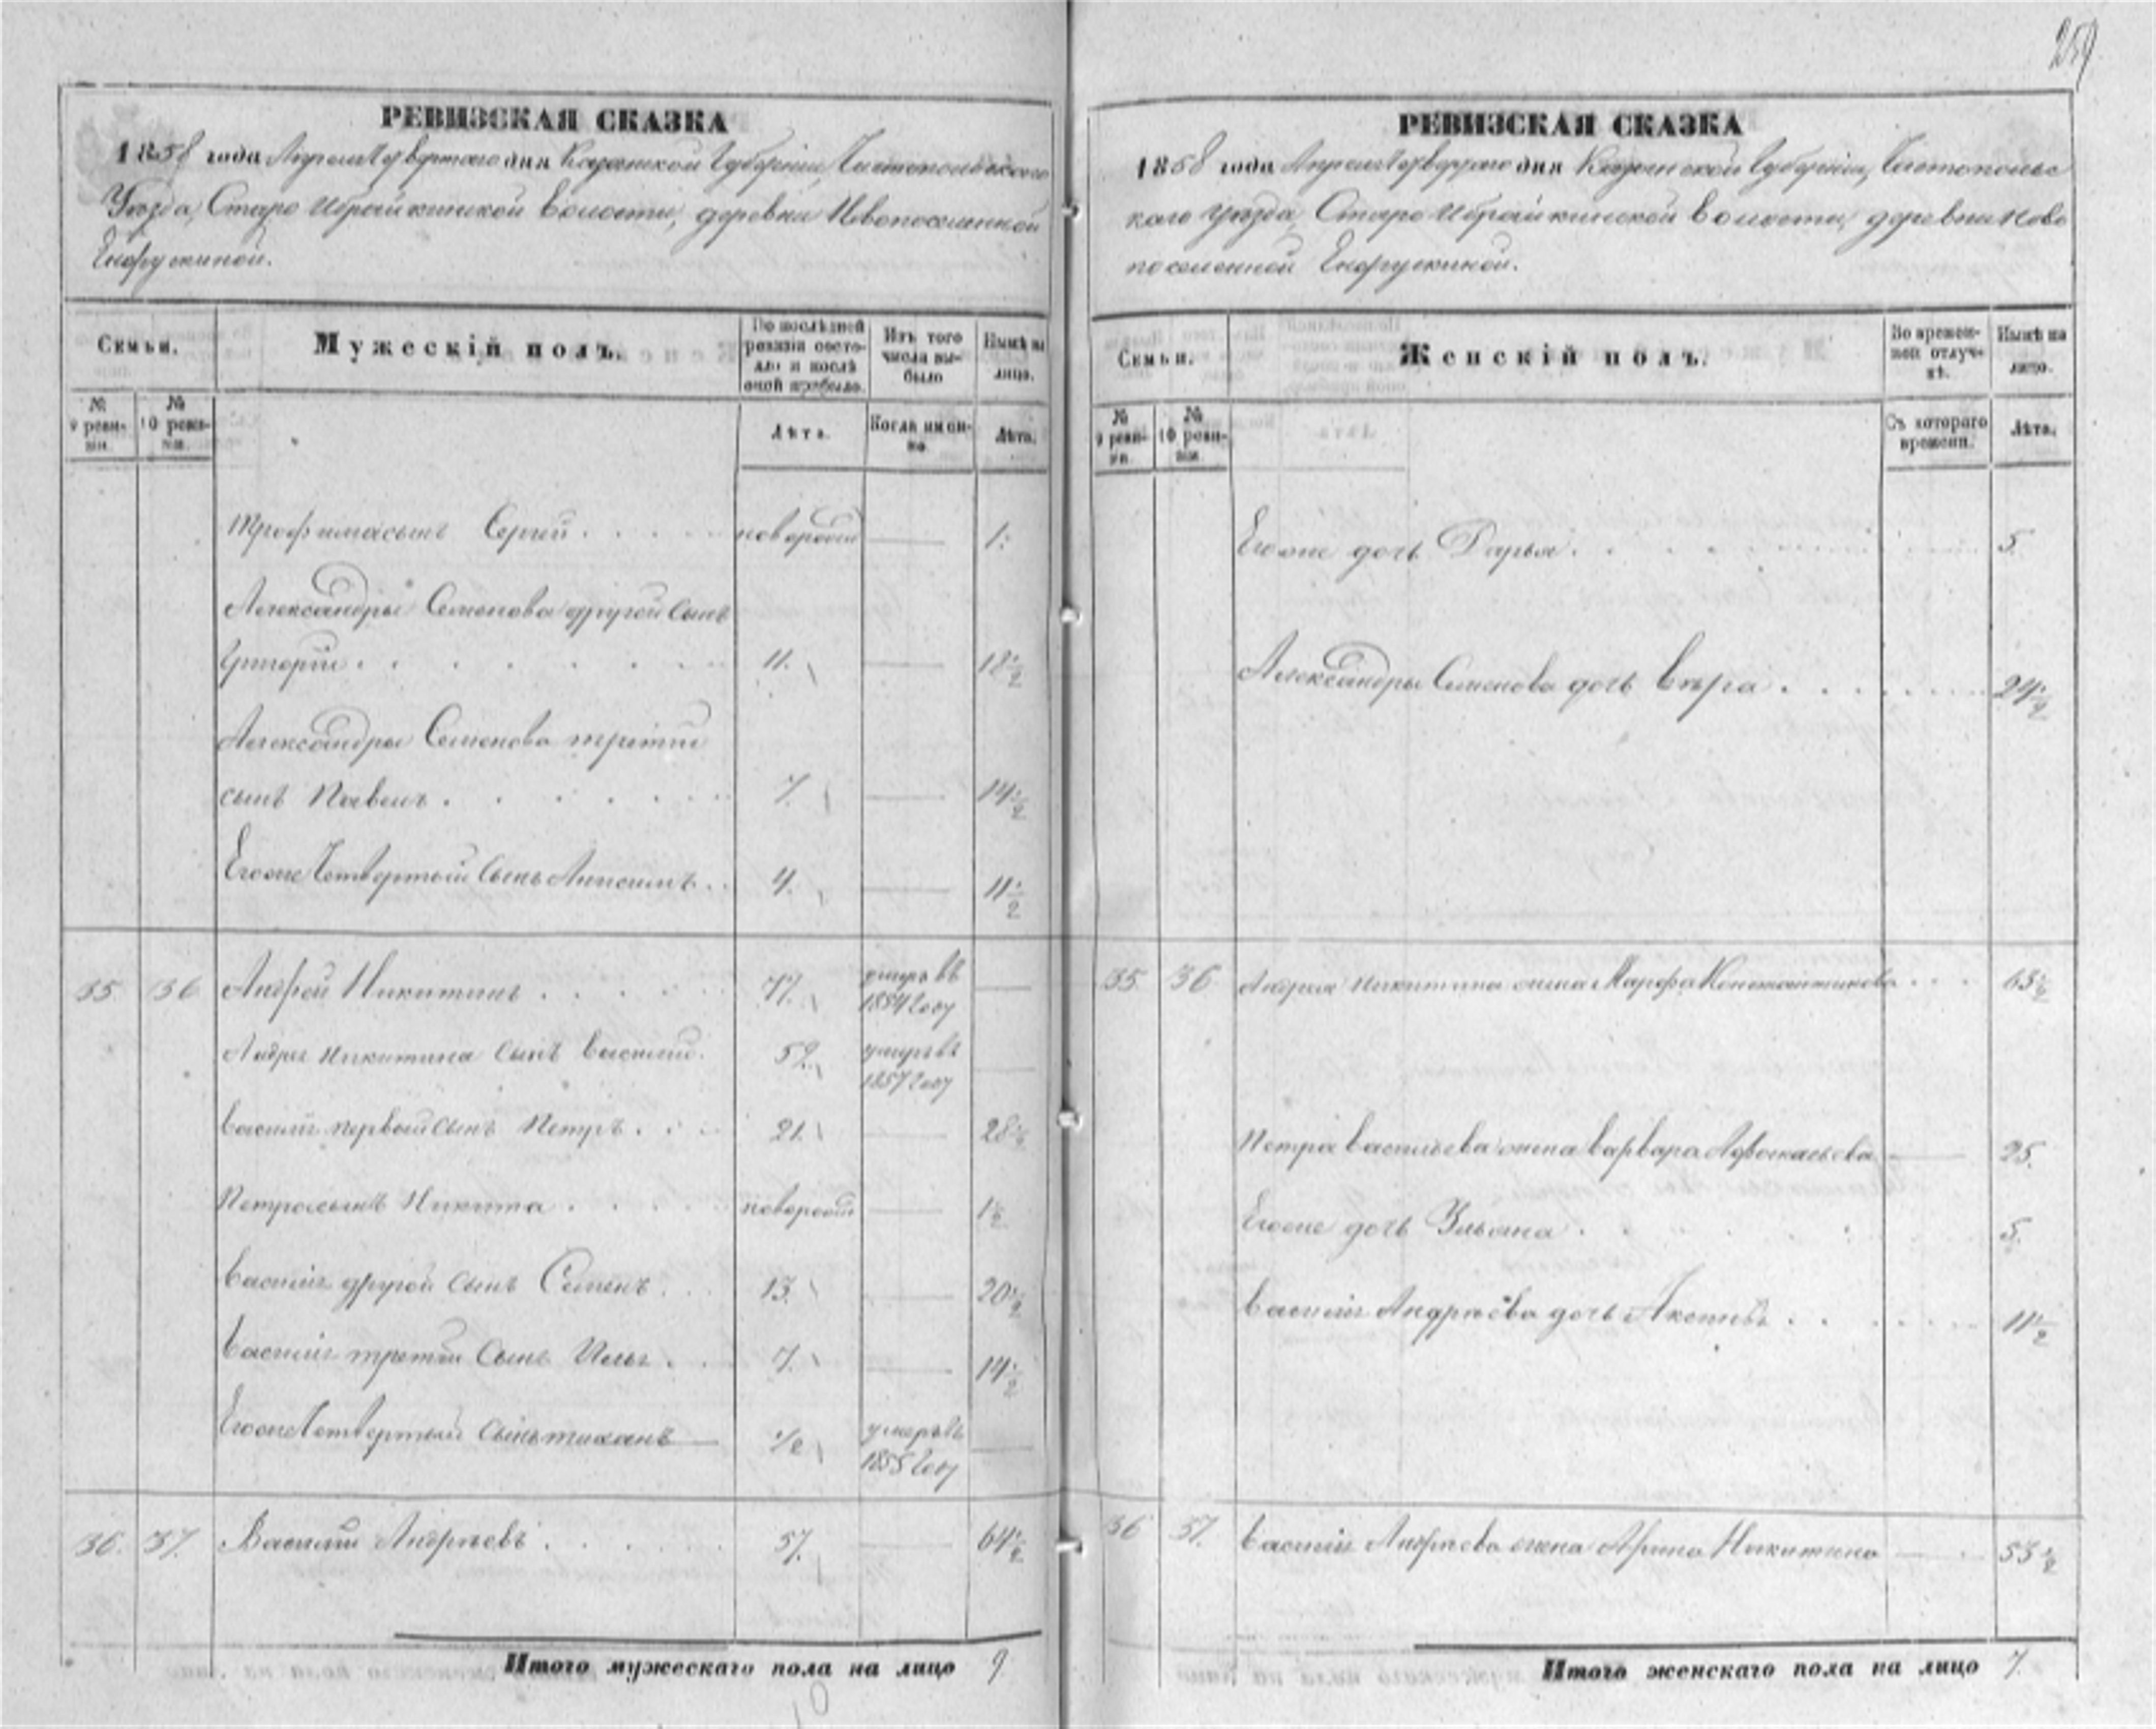 259
РЕВИЗСКАЯ СКАЗКА
1858 года Апреля Четвертаго дня Казанской Губерніи, Чистопольскаго
Уѣзда, Старо Ибрайкинской волости, деревни Новопоселенной
Енорускиной.
Семьи.
Мужескій полъ.
По послѣдней ревизіи состояло и послѣ оной прибыло.
Изъ того числа выбыло
Нынѣ на лицо.
№ 9 ревизіи.
№ 10 ревизіи.
Лѣта.
Когда именно.
Лѣта.
Трофима сынъ Сергей новорожд 1.
Александры Семенова другой сынъ
Григорій 11. 18 1/2
Александры Семенова третий
сынъ Павелъ 7. 14 1/2
Егоже Четвертый сынъ Анисимъ 4. 11 1/2
35 36 Андрей Никитинъ 77. умеръ въ
1854 году
Андрея Никитина сынъ Василий 52. умеръ въ
1857 году
Василія первый сынъ Петръ 21. 28 1/2
Петра сынъ Никита новорожд 1 1/2
Василія другой сынъ Семенъ 13. 20 1/2
Василія третий сынъ Илья 7. 14 1/2
Егоже Четвертый сынъ 1/2 умеръ въ
1855 году
36. 37. Василий Андреевъ 57. 64 1/2
Итого мужескаго пола на лицо 9
10
РЕВИЗСКАЯ СКАЗКА
1858 года Апреля Четвертаго дня Казанской Губерніи, Чистопольс
каго уѣзда, Старо Ибрайкинской волости, деревни Ново
поселенной Енорускиной.
Семьи.
Женскій полъ.
Во временной отлучкѣ.
Нынѣ на лицо.
№ 9 ревизіи.
№ 10 ревизіи.
Съ котораго времени.
Лѣта.
Егоже дочь Дарья 5.
Александры Семенова дочь Вѣра 24 1/2
35 36 Андрея Никитина жена Марфа Константинова 63 1/2
Петра Васильева жена Варвара 25.
Егоже дочь Ульяна 5.
Василія Андреева дочь 11 1/2
36 37. Василія Андреева жена Арина Никитина 53 1/2
Итого женскаго пола на лицо 7.